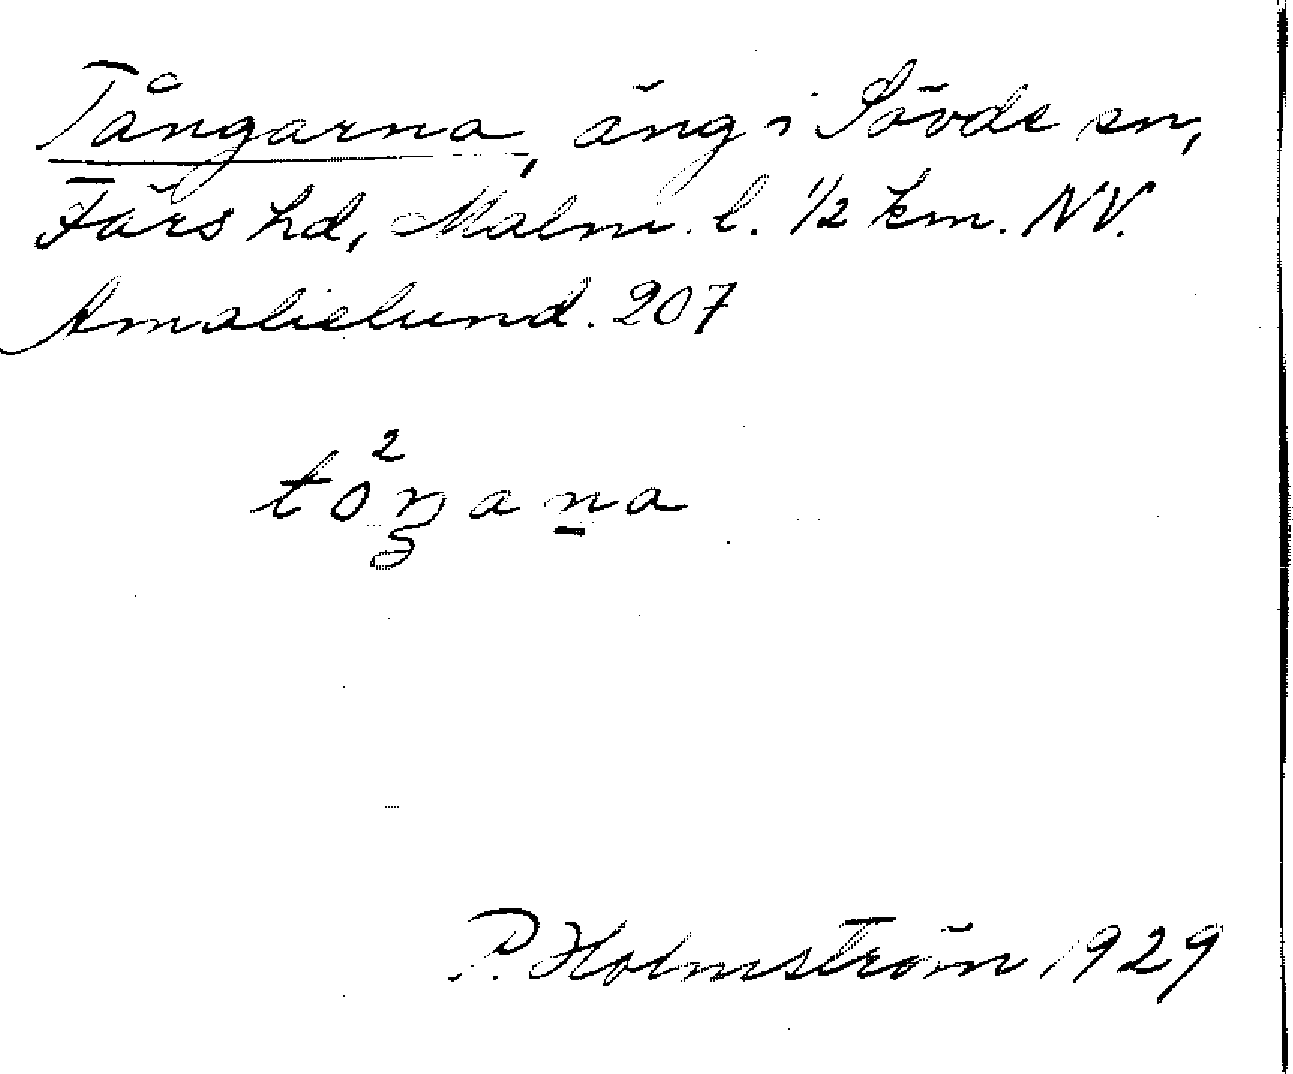 Tångarna, äng i Sövde sn,
Färs hd, Malm. l. 1/2 km. NV.
Amalielund. 207
2
toŋana
P. Holmström 1929